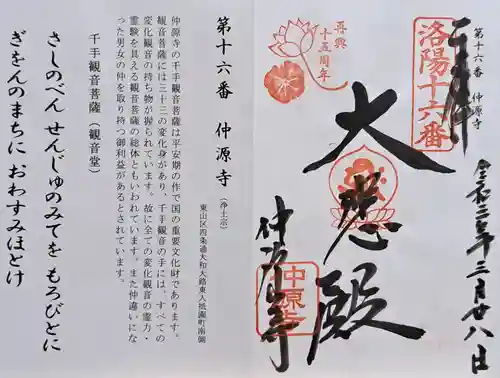 第十六番 仲源寺
奉拝
洛陽十六番
再興
十五周年
大悲殿
仲源寺
中原寺
令和二年三月廿八日
第十六番 仲源寺(浄土宗)
東山区四条通大和大路東入祇園町南側
仲源寺の千手観音菩薩は平安期の作で国の重要文化財であります。
観音菩薩には三十三の変化身があり、千手観音の手には、すべての
変化観音の持ち物が握られています。故に全ての変化観音の霊力・
霊験を具える観音菩薩の総体ともいわれています。また仲違いにな
った男女の仲を取り持つ御利益があるとされています。
千手観音菩薩(観音堂)
さしのべん せんじゅのみてを もろびとに
ぎをんのまちに おわすみほとけ